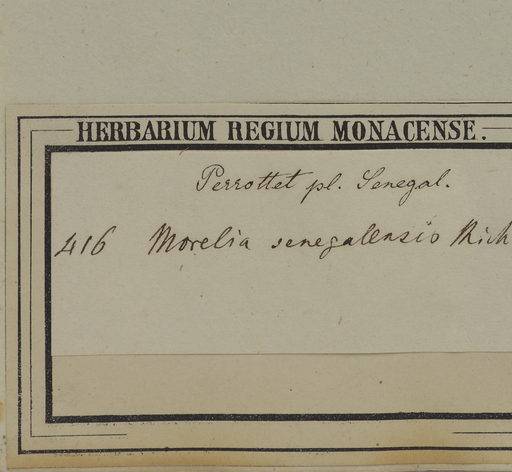 HERBARIUM REGIUM MONACENSE.
Perrottet pl. Senegal.
416 Morelia senegalensis Rich